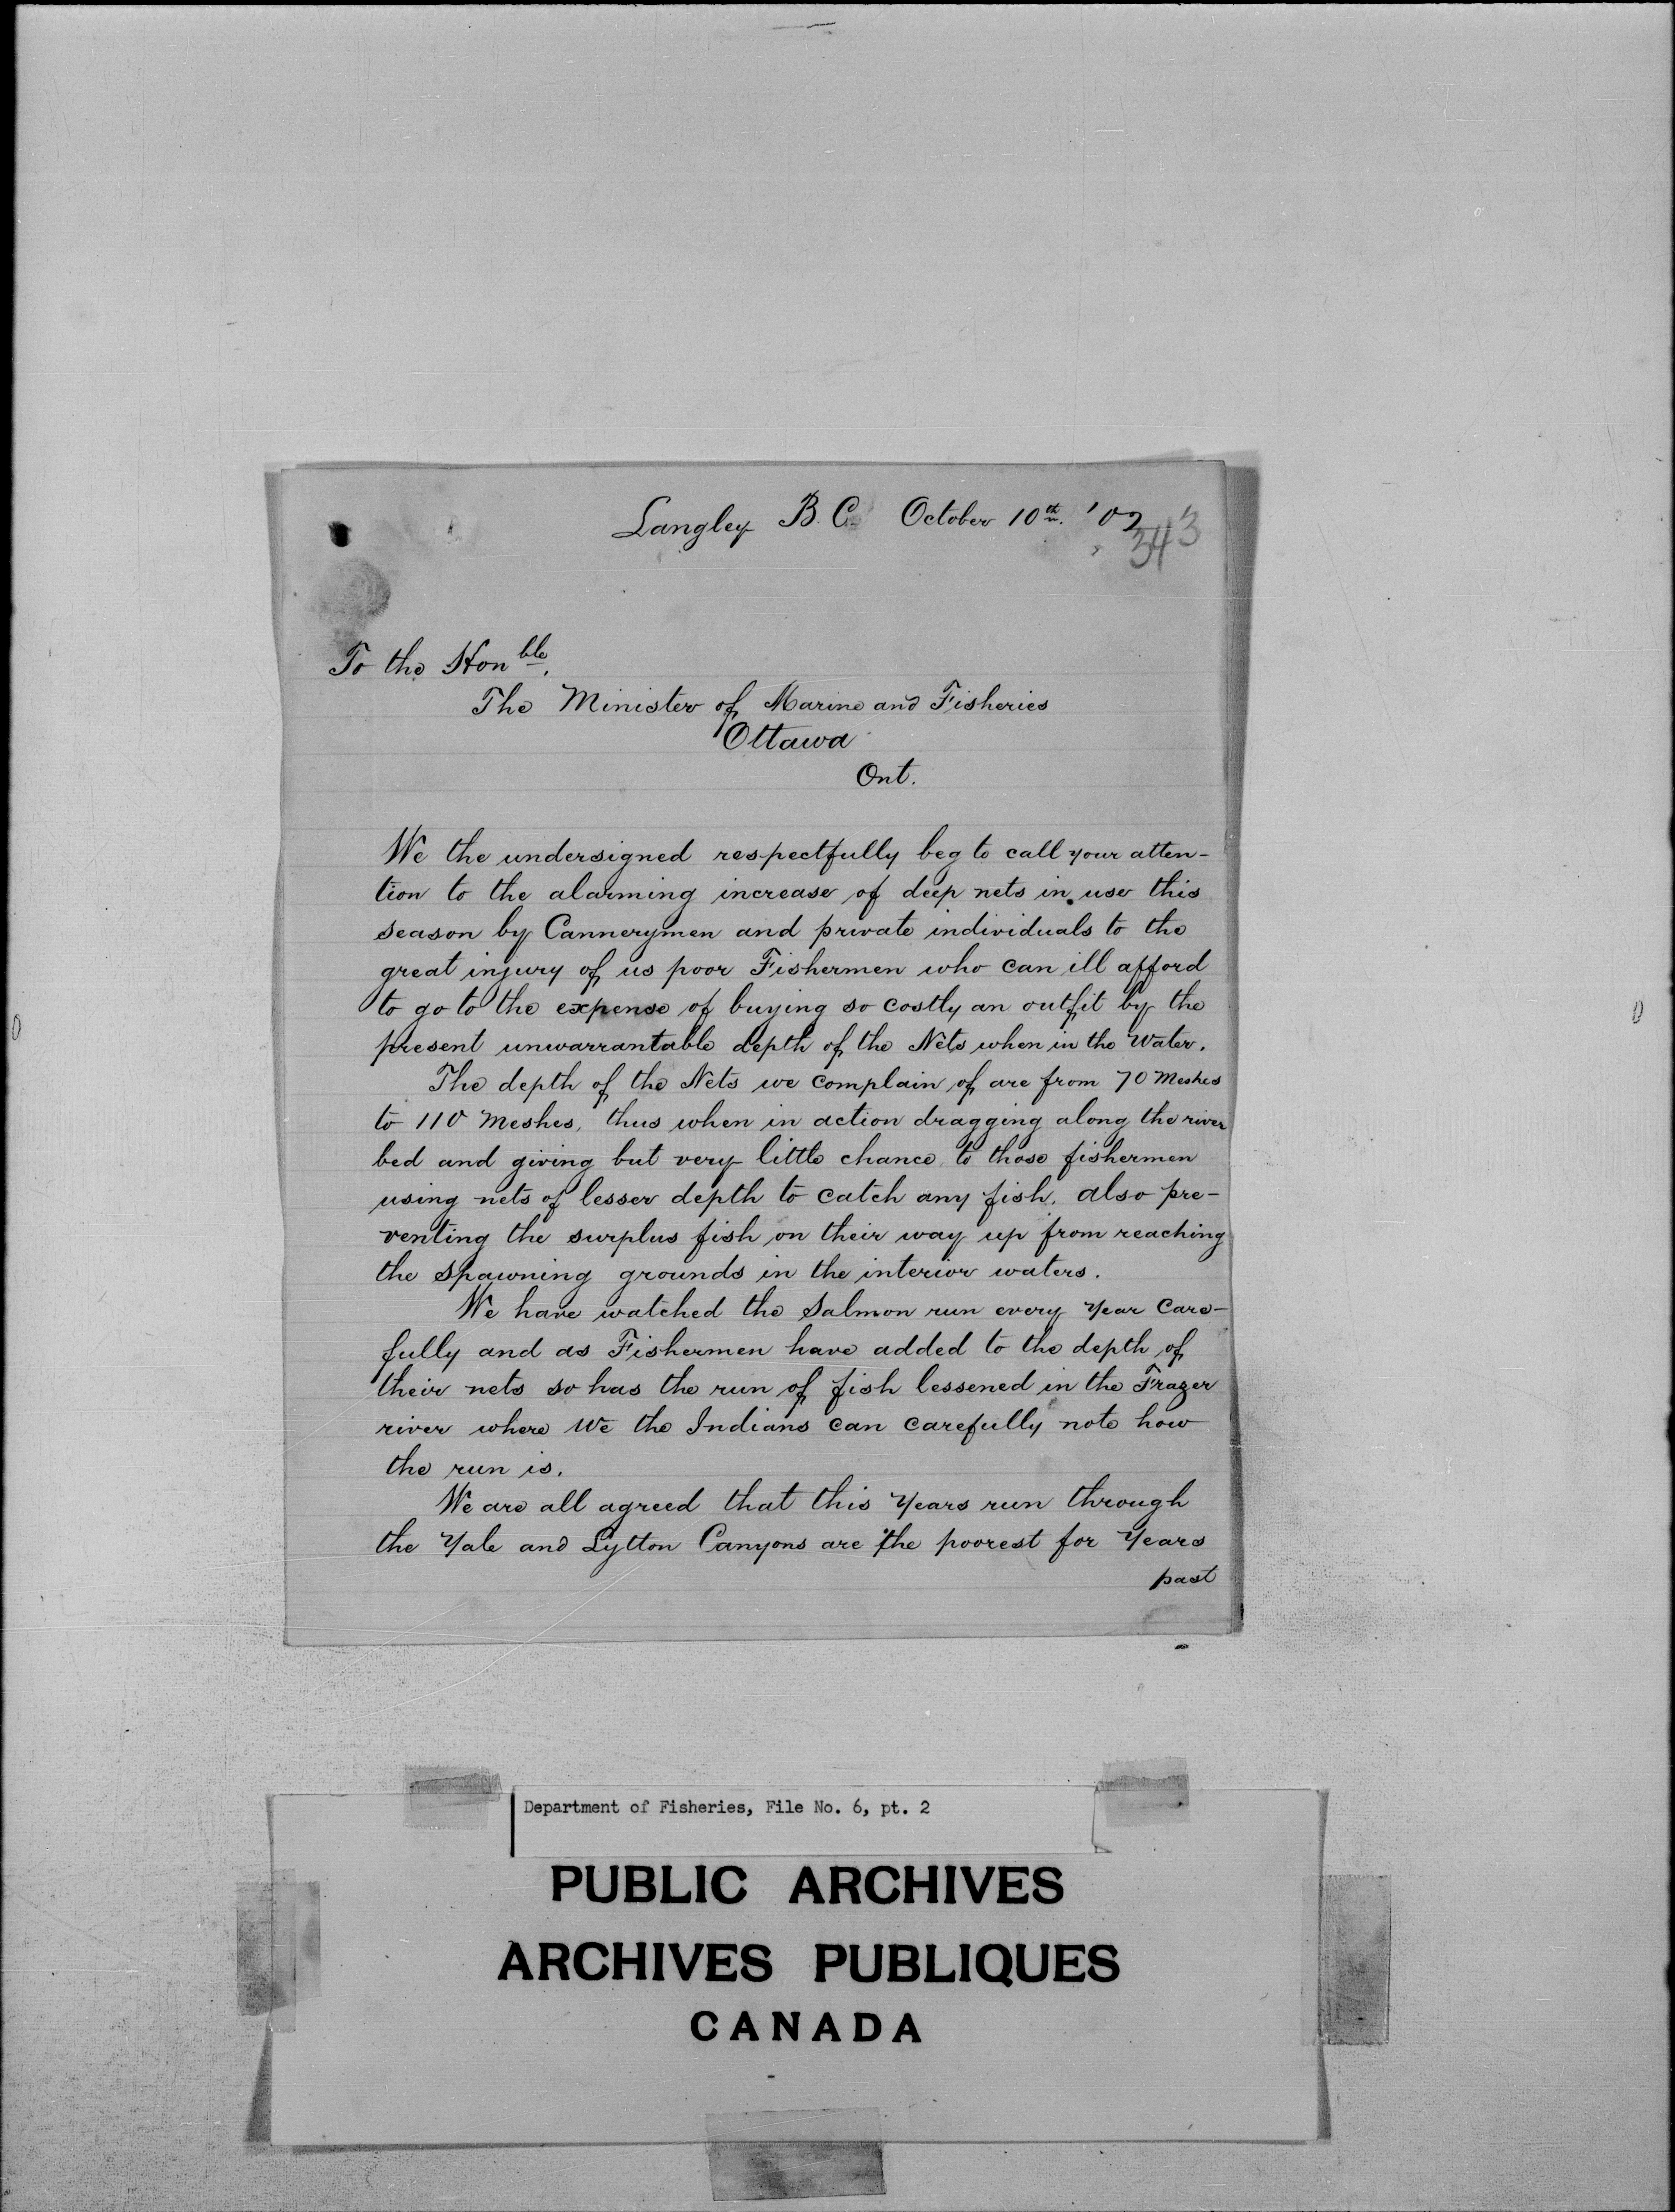 Langley B. C. October 10th. '02
343
To the Honble.
The Minister of Marine and Fisheries
Ottawa
Ont.
We the undersigned respectfully beg to call your atten-
tion to the alarming increase of deep nets in use this
season by Cannerymen and private individuals to the
great injury of us poor Fishermen who can ill afford
to go to the expense of buying so costly an outfit by the
present unwarrantable depth of the Nets when in the Water.
The depth of the Nets we complain of are from 70 Meshes
to 110 Meshes, thus when in action dragging along the river
bed and giving but very little chance to those fishermen
using nets of lesser depth to catch any fish, also pre-
venting the surplus fish on their way up from reaching
the spawning grounds in the interior waters.
We have watched the Salmon run every Year Care-
fully and as Fishermen have added to the depth of
their nets so has the run of fish lessened in the Frazer
river where We the Indians can carefully note how
the run is.
We are all agreed that this Years run through
the Yale and Lytton Canyons are the poorest for Years
past
Department of Fisheries, File No. 6, pt. 2
PUBLIC ARCHIVES
ARCHIVES PUBLIQUES
CANADA